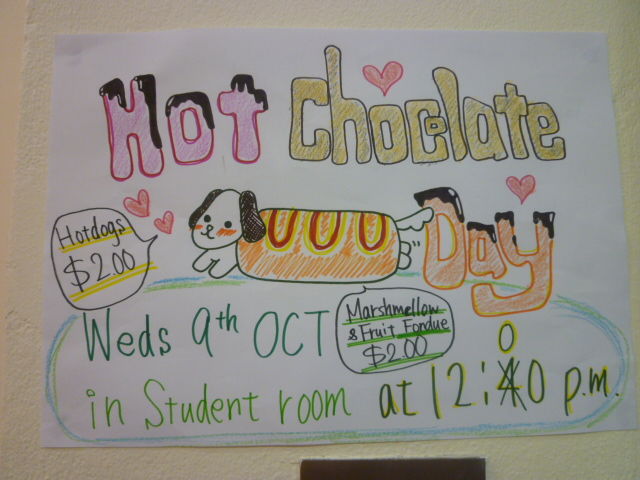 Hot Chocolate
Day
Hotdogs
$2.00
Marshmellow
& Fruit Fondue
$2.00
Weds 9th OCT
in Student room at 12:00 p.m.